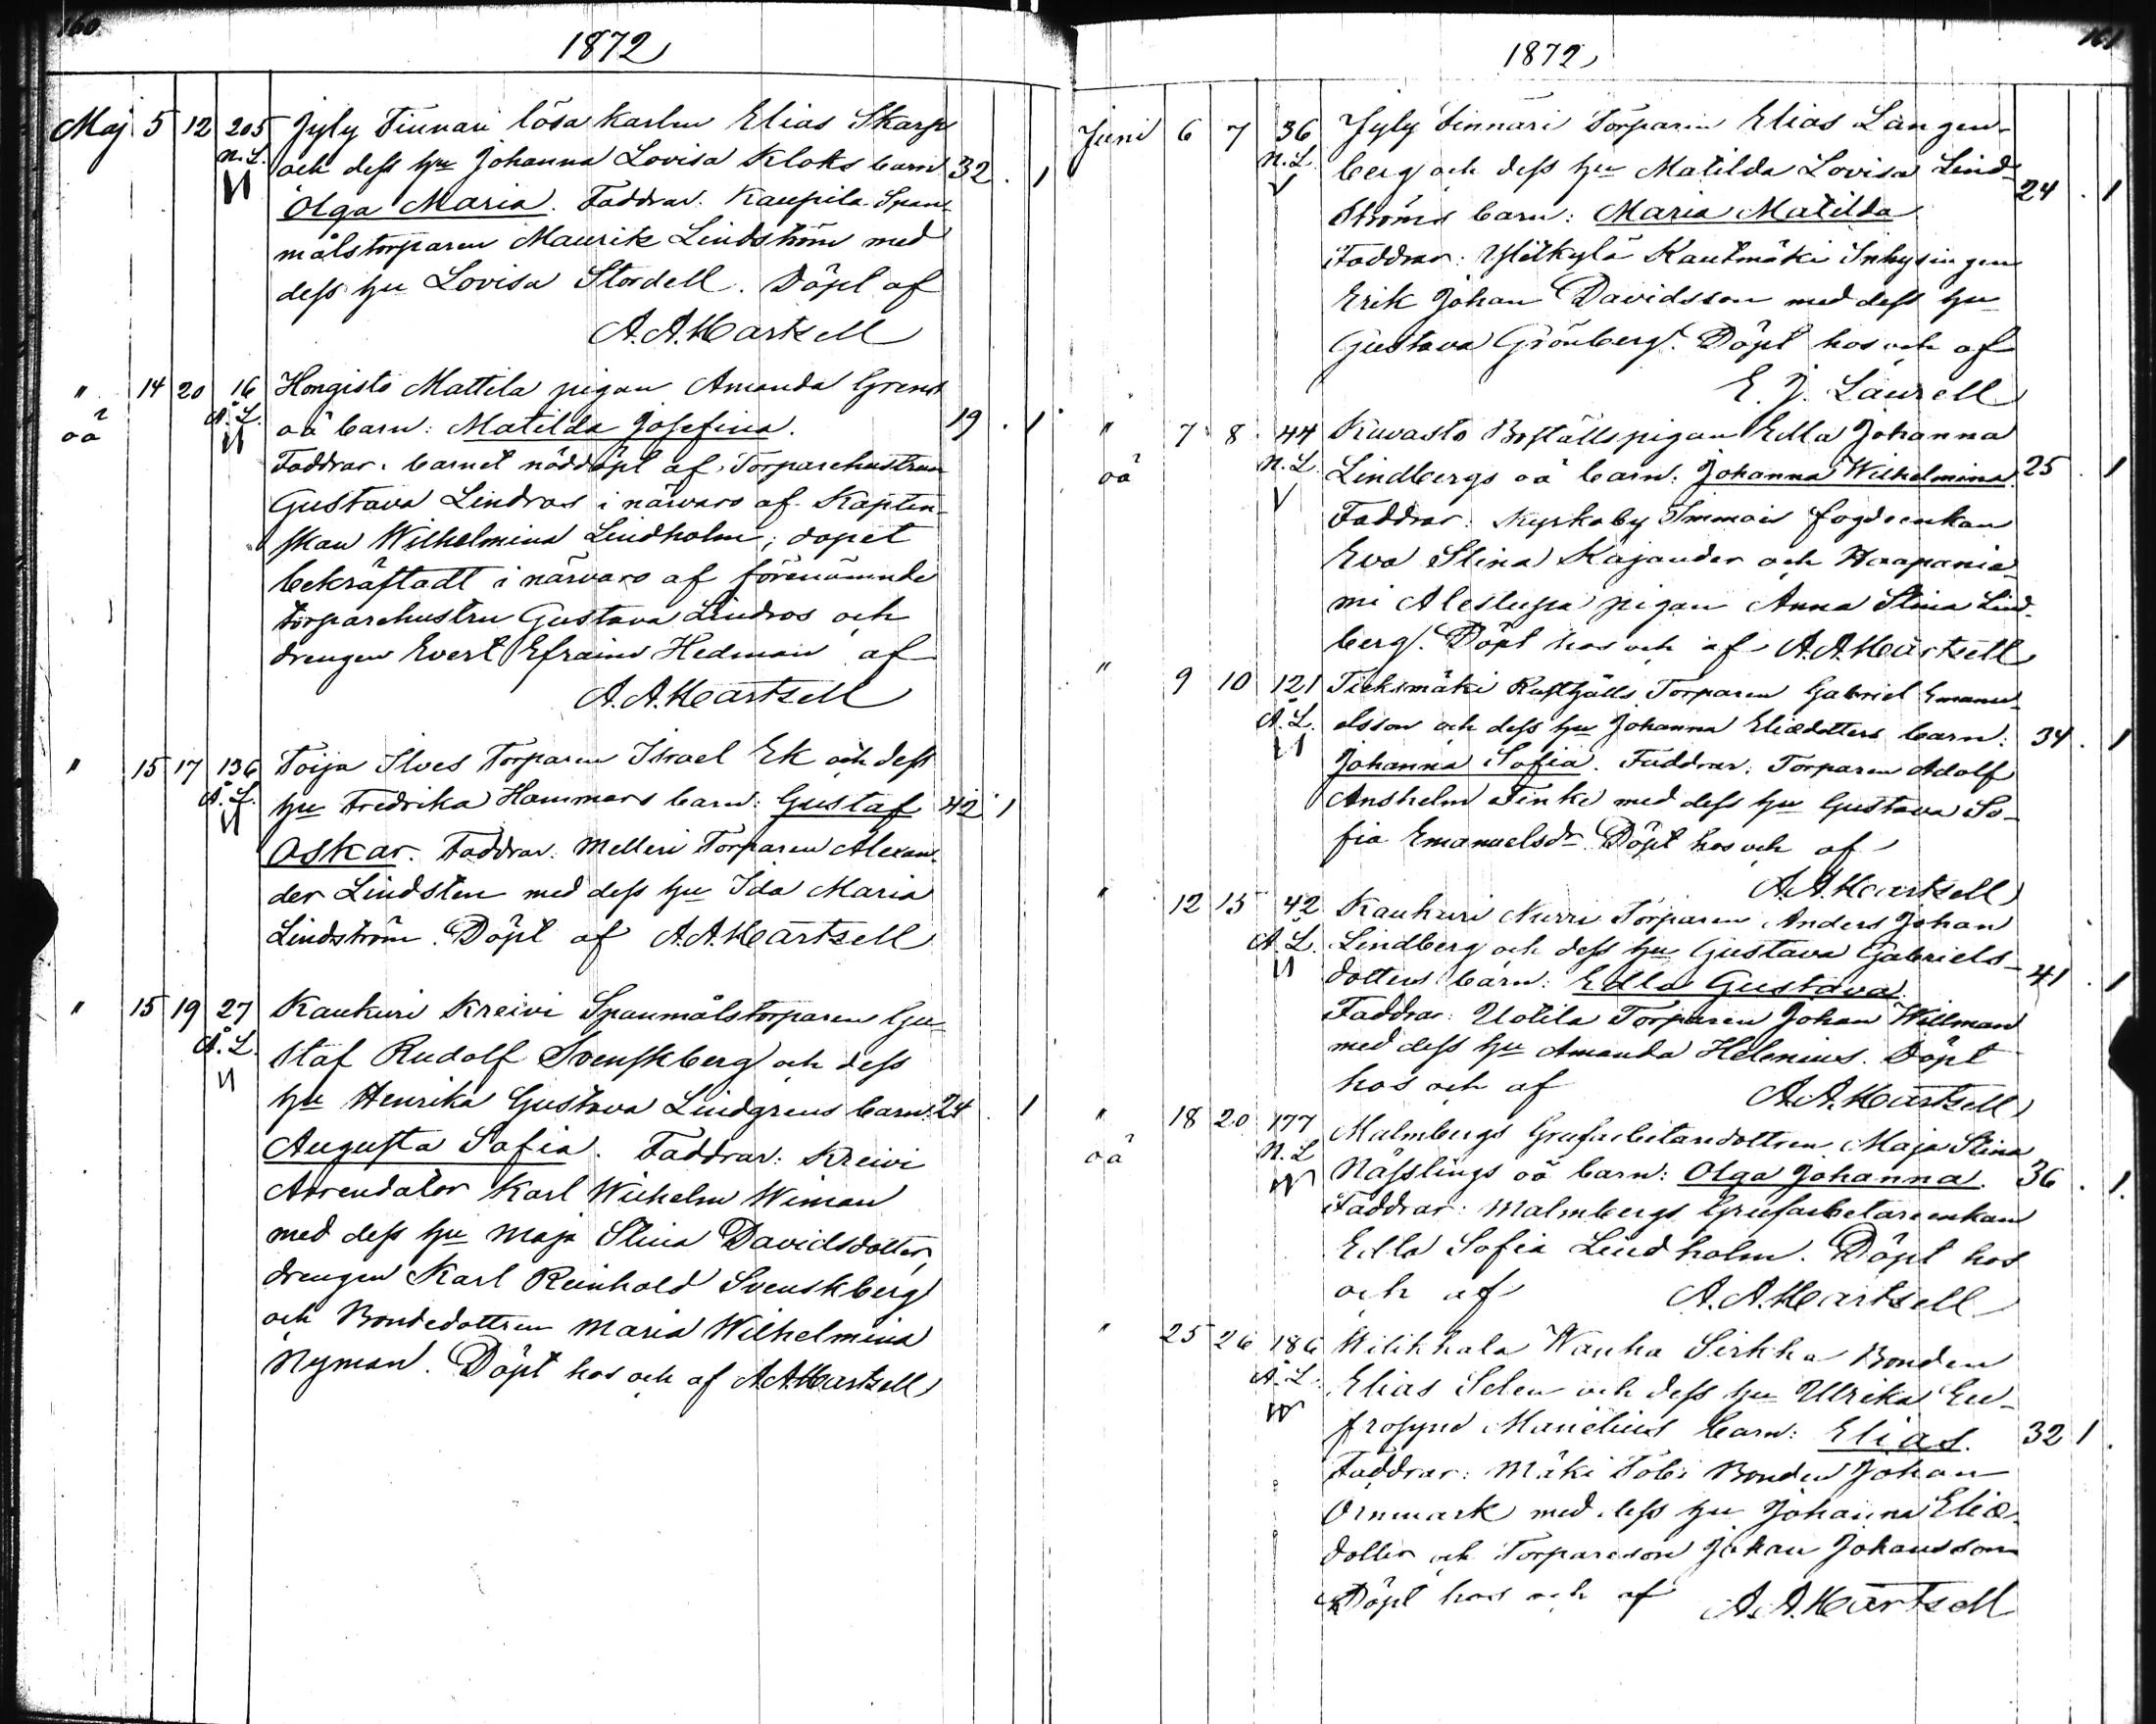 160.
1872
Maj 5 12 205 Jyly Finnari lösa karlen Elias Skarp
N.L. och dess hu Johanna Lovisa Kloks barn 32 . 1
Olga Maria. Faddrar. Kaupila Span-
målstorparen Maurik Lindström med
dess hu Lovisa Stordell. Döpt af
A.A. Hartzell
" 14 20 16 Hongisto Mattila pigan Amanda
oä Å.L. oä barn: Matilda Josefina. 19 . 1
Faddrar. barnet nöddöpt af Torparehustrun
Gustava Lindros i närvaro af Kapten-
skan Wilhelmina Lindholm; dopet
bekräftadt i närvaro af förenämnde
torparehustru Gustava Lindros och
drengen Evert Efraim Hedman af
A.A. Hartzell
" 15 17 136 Toija Ilves Torparen Israel Ek och dess
Å.L. hu Fredrika Hammars barn: Gustaf 42 1
Oskar. Faddrar: Melleri Torparen Alexan-
der Lindsten med dess hu Ida Maria
Lindström. Döpt af A.A. Hartzell
" 15 19 27 Kaukuri Kreivi Spanmålstorparen Gu-
Å.L. staf Rudolf Svenskberg och dess
hu Henrika Gustava Lindgrens barn: 24 . 1
Augusta Sofia. Faddrar: Kreivi
Arrendator Karl Wilhelm Wiman
med dess hu Maja Stina Davidsdotter,
drengen Karl Reinhold Svenskberg
och Bondedottren Maria Wilhelmina
Nyman. Döpt hos och af A.A. Hartzell
161
1872
Juni 6 7 36 Jyly Finnari Torparen Elias Langen-
N.L. berg och dess hu Matilda Lovisa Lind- 24 . 1
ströms barn: Maria Matilda
Faddrar: Ylikylä Kautmäki Inhysingen
Erik Johan Davidsson med dess hu
Gustava Grönberg. Döpt hos och af
E. J. Laurell
" 7 8 44 Kavasto Boställspigan Edla Johanna
oä N.L. Lindbergs oä barn: Johanna Wilhelmina. 25 . 1
Faddrar: Kyrkoby Immois fogdeenkan
Eva Stina Kajander och Haapania-
mi pigan Anna Stina Lind-
berg. Döpt hos och af A.A. Hartzell
" 9 10 121 Rusthålls Torparen Gabriel Emanu-
Å.L. elsson och dess hu Johanna Eliædotters barn: 34 . 1
Johanna Sofia. Faddrar: Torparen Adolf
Anshelm Finke med dess hu Gustava So-
fia Emanuelsdr. Döpt hos och af
A.A. Hartzell
" 12 15 42 Kaukuri Nurri Torparen Anders Johan
Å.L. Lindberg och dess hu Gustava Gabriels-
dotters barn: Edla Gustava. 41 . 1
Faddrar: Uotila Torparen Johan Willman
med dess hu Amanda Helenius. Döpt
hos och af A.A. Hartzell
" 18 20 177 Malmbergs Grufarbetaredottren Maja Stina
oä N.L. Nässlings oä barn: Olga Johanna. 36 . 1.
Faddrar: Malmbergs Grufarbetareenkan
Edla Sofia Lindholm. Döpt hos
och af A.A. Hartzell
" 25 26 186 Wilikkala Wanha Sirkka Bonden
Å.L. Elias Selen och dess hu Ulrika Eu-
frosyne Manelius barn: Elias. 32 1 .
Faddrar: Mäki Tobi Bonden Johan
Ornmark med dess hu Johanna Eliæ-
dotter och Torpareson Johan Johansson
Döpt hos och af A.A. Hartzell